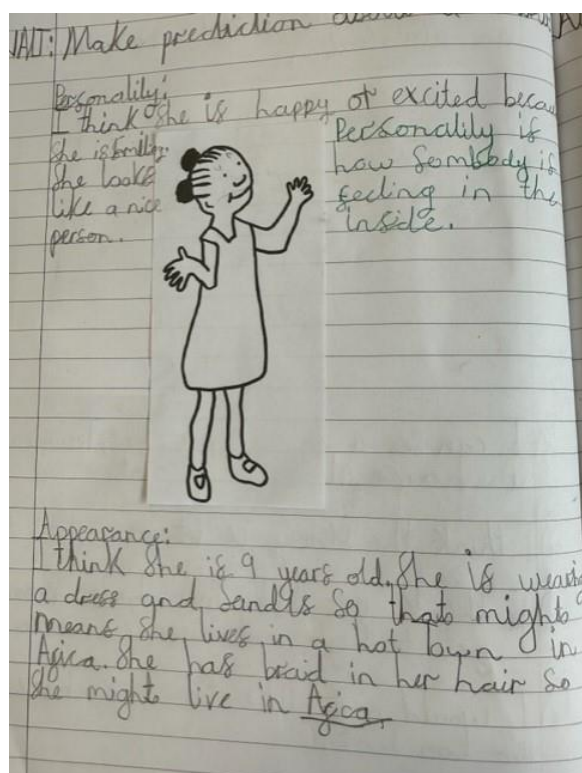 Make prediction about a
Personality:
I think she is happy or excited becau
she is smiling.
She looks
like a nice
person.
Personality is
how sombody is
feeling in the
inside.
Appearance:
I think she is 9 years old. She is wearing
a dress and sandls so that might
means she lives in a hot town in
Africa. She has braid in her hair so
she might live in Africa